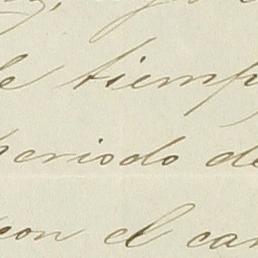 de tiemp
periodo de
con el car